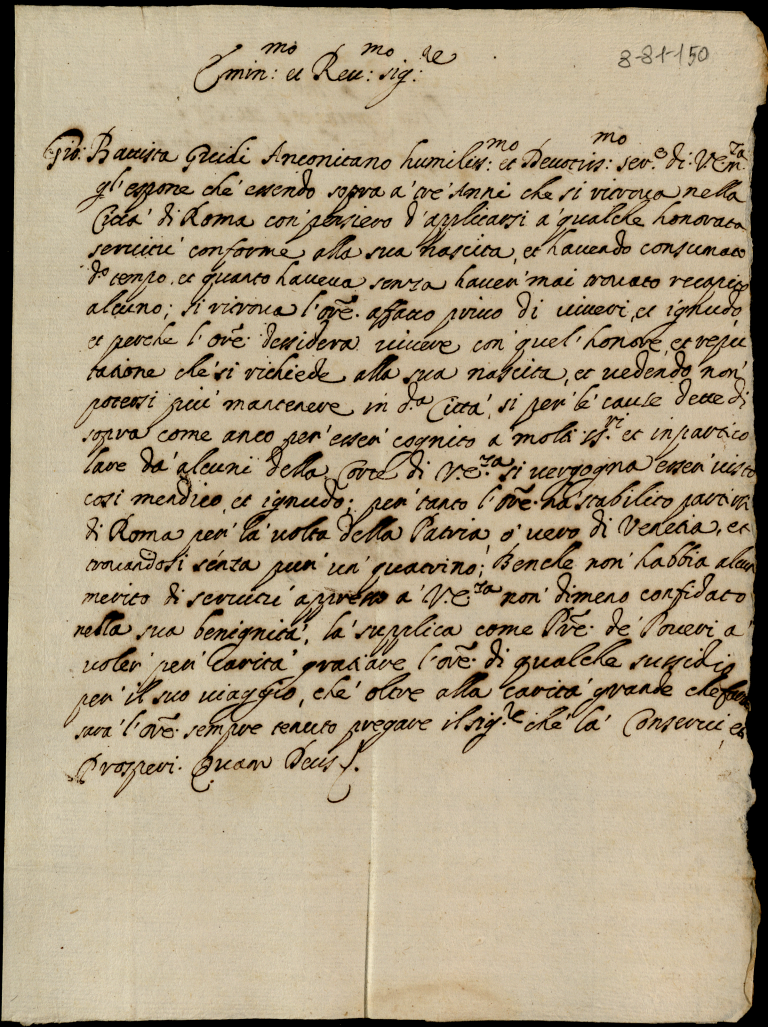 8-81-150
Emin:mo et Reu:mo sig:re
Gio: Battista Guidi Anconitano humiliss:mo et Deuotiss:mo ser.e di V. Em.za
gl'espone che' essendo sopra a' tre' Anni che si ritroua nella
Città di Roma con' pensiero d'applicarsi a' qualche honorata
seruitù conforme alla sua nascita, et hauendo consumato
d.o tempo, et quanto haueua senza hauer' mai trouato recapito
alcuno; si ritroua l'ore. affatto priuo di uiueri, et ignudo,
et perche l'ore. dessidera uiuere con' quel' honore, et repu
tatione che' si richiede alla sua nascita, et uedendo non'
potersi più mantenere in d.a Città, si per le' cause dette di
sopra come anco per' esser' cognito a molti ss.ri et in partico
lare da' alcuni della Corte di V.E.za si uergogna esser' uisto
cosi mendico, et ignudo; per' tanto l'ore. ha' stabilito partirsi
di Roma per' la' uolta della Patria o' uero di Venetia, et
trouandosi senza pur' un' quatrino; Benche non' habbia alcun
merito di seruitù appresso a' V.E.za non' dimeno confidato
nella sua benignità, la' supplica come Pre. de' Poueri a'
uoler' per' Carità gratiare l'ore. di qualche sussidio
per' il suo uiaggio, che' oltre alla Carità grande che farà
sarà l'ore. sempre tenuto pregare il sig.re che' la' Conserui, et
Prosperi. Quam Deus.